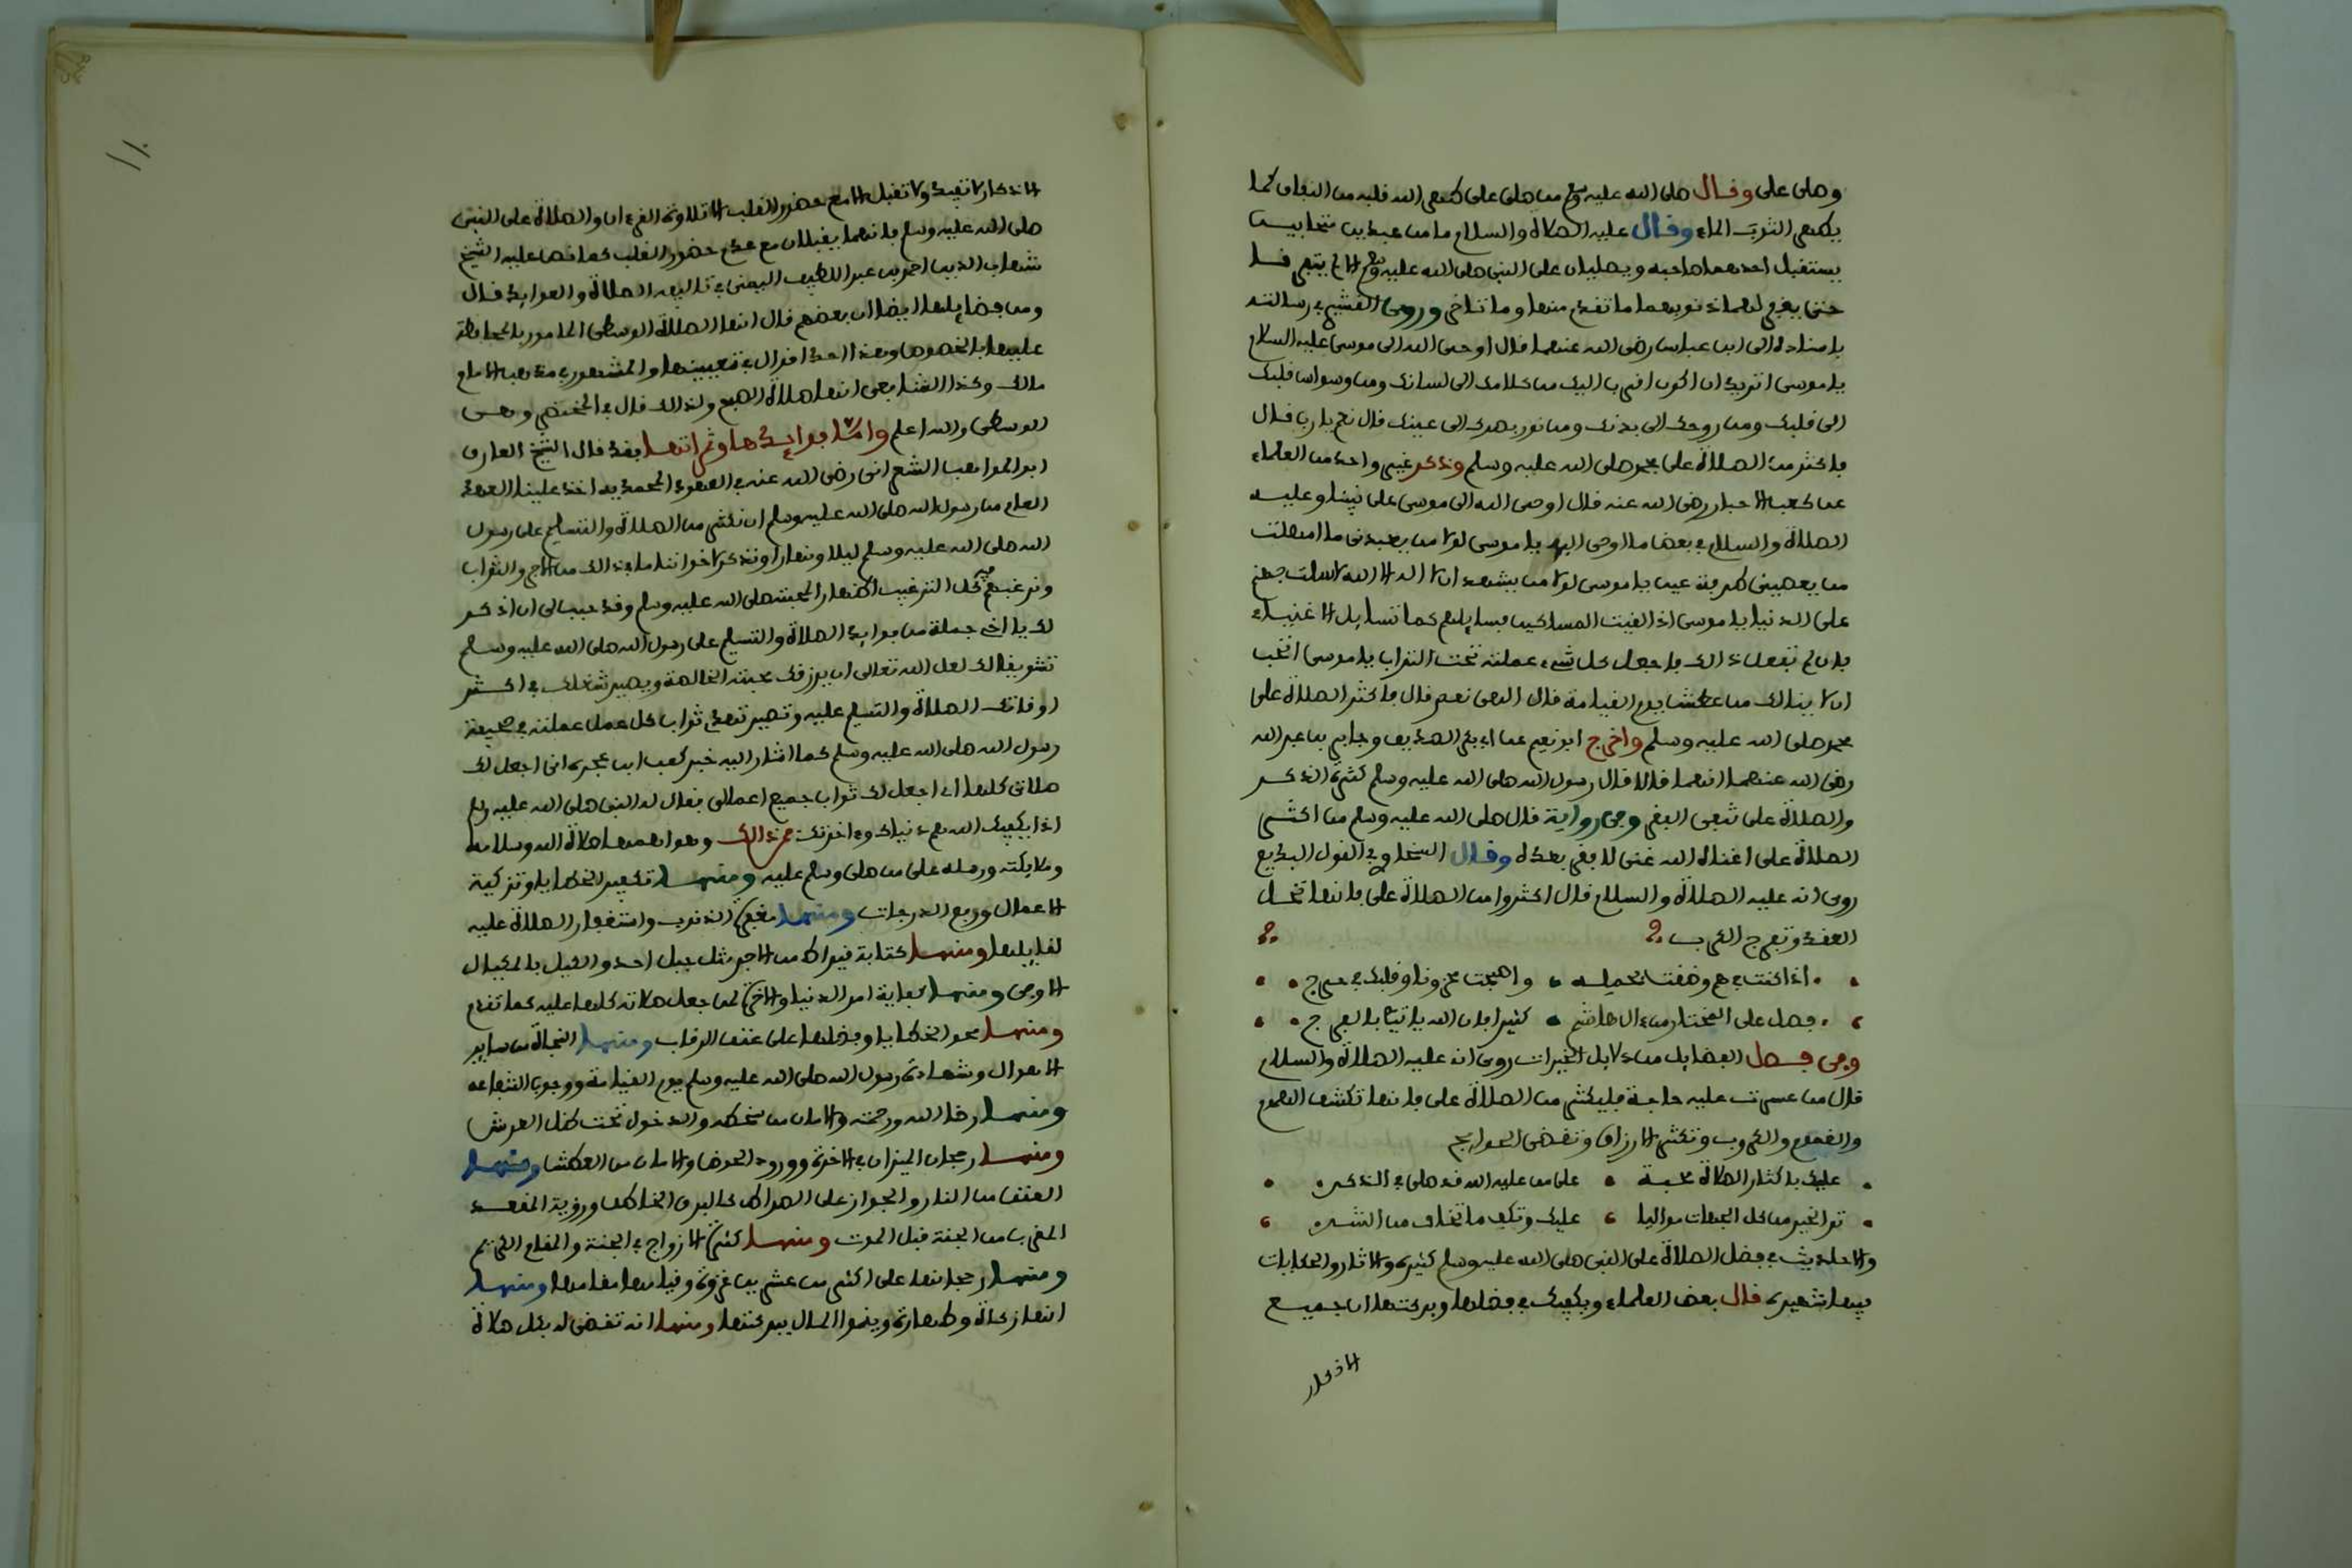 وصلى علي وقال صلى الله عليه وسلم من صلى علي طهر الله قلبه من النفاق كما
يطهر الثوب الماء وقال عليه الصلاة والسلام ما من عبدين متحابين
يستقبل احدهما صاحبه ويصليان على النبي صلى الله عليه وسلم الا لم يتفرقا
حتى يغفر لهما ذنوبهما ما تقدم منها وما تأخر وروى القشيري في رسالته
باسناده الى ابن عباس رضي الله عنهما قال اوحى الله الى موسى عليه السلام
يا موسى اتريد ان اكون اقرب اليك من كلامك الى لسانك ومن وسواس قلبك
الى قلبك ومن روحك الى بدنك ومن نور بصرك الى عينك قال نعم يا رب قال
فاكثر من الصلاة على محمد صلى الله عليه وسلم وذكر غير واحد من العلماء
عن كعب الاحبار رضي الله عنه قال اوحى الله الى موسى على نبينا وعليه
الصلاة والسلام في بعض ما اوحى اليه يا موسى لولا من يعبدني ما امهلت
من يعصيني طرفة عين يا موسى لولا من يشهد ان لا اله الا الله لاسلت جهنم
على الدنيا يا موسى اذا لقيت المساكين فسايلهم كما تسايل الاغنياء
فان لم تفعل ذالك فاجعل كل شيء عملته تحت التراب يا موسى اتحب
ان لا ينالك من عطش يوم القيامة قال الهي نعم قال فاكثر الصلاة على
محمد صلى الله عليه وسلم واخرج ابو نعيم عن ابي بكر الصديق وجابر بن عبد الله
رضي الله عنهما انهما قالا قال رسول الله صلى الله عليه وسلم كثرة الذكر
والصلاة علي تنفي الفقر وفي رواية قال صلى الله عليه وسلم من اكثر
الصلاة علي اغناه الله غنى لا فقر بعده وقال السخاوي في القول البديع
روي انه عليه الصلاة والسلام قال اكثروا من الصلاة علي فانها تحل
العقد وتفرج الكرب
اذا كنت في هم وضقت بحمله واصبحت محزونا وقلبك في حرج
فصل على المختار من ءال هاشم كثيرا فان الله ياتيك بالفرج
وفي فصل الفضايل من دلايل الخيرات روي انه عليه الصلاة والسلام
قال من عسرت عليه حاجة فليكثر من الصلاة علي فانها تكشف الهموم
والغموم والكروب وتكثر الارزاق وتقضي الحوايج
عليك باكثار الصلاة محبة على من عليه الله قد صلى في الذكر
تر الخير من كل الجهات مواليا عليك وتكف ما تخاف من الشر
والاحاديث في فضل الصلاة على النبي صلى الله عليه وسلم كثيرة والاثار والحكايات
فيها شهيرة قال بعض العلماء ويكفيك في فضلها وبركتها ان جميع
الاذكار
الاذكار لا تفيد ولا تقبل الا مع حضور القلب الا تلاوة القرءان والصلاة على النبي
صلى الله عليه وسلم فانهما يقبلان مع عدم حضور القلب كما نص عليه الشيخ
شهاب الدين احمد بن عبد اللطيف اليمني في تاليفه الصلاة والعوايد قال
ومن فضايلها ايضا ان بعضهم قال انها الصلاة الوسطى المامور بالمحافظة
عليها بالخصوص وهذا احد اقوال في تعيينها والمشهور في مذهب الامام
مالك وكذا الشافعي انها صلاة الصبح ولذالك قال في المختصر وهي
الوسطى والله اعلم واما فوايدها وثمراتها فقد قال الشيخ العارف
ابو المواهب الشعراني رضي الله عنه في العهود المحمدية اخذ علينا العهد
العام من رسول الله صلى الله عليه وسلم ان نكثر من الصلاة والتسليم على رسول
الله صلى الله عليه وسلم ليلا ونهارا ونذكر لاخواننا ما في ذالك من الاجر والثواب
ونرغبهم فيه كل الترغيب اظهارا لمحبته صلى الله عليه وسلم وقد حبب الي ان اذكر
لك يا اخي جملة من فوايد الصلاة والتسليم على رسول الله صلى الله عليه وسلم
تشويقا لك لعل الله تعالى ان يرزقك محبته الخالصة ويصير شغلك في اكثر
اوقاتك الصلاة والتسليم عليه وتصير تهدي ثواب كل عمل عملته في صحيفة
رسول الله صلى الله عليه وسلم كما اشار اليه خبر كعب ابن عجرة اني اجعل لك
صلاتي كلها اي اجعل لك ثواب جميع اعمالي فقال له النبي صلى الله عليه وسلم
اذا يكفيك الله هم دنياك وءاخرتك فمن ذالك وهو اهمها صلاة الله وسلامه
وملايكته ورسله على من صلى وسلم عليه ومنها تكفير الخطايا وتزكية
الاعمال ورفع الدرجات ومنها مغفرة الذنوب واستغفار الصلاة عليه
لقايلها ومنها كتابة قيراط من الاجر مثل جبل احد والكيل بالمكيال
الاوفى ومنها كفاية امر الدنيا والاخرة لمن جعل صلاته كلها عليه كما تقدم
ومنها محو الخطايا وفضلها على عتق الرقاب ومنها النجاة من ساير
الاهوال وشهادة رسول الله صلى الله عليه وسلم يوم القيامة ووجوب الشفاعة
ومنها رضا الله ورحمته والامان من سخطه والدخول تحت ظل العرش
ومنها رجحان الميزان في الاخرة وورود الحوض والامان من العطش ومنها
العتق من النار والجواز على الصراط كالبرق الخاطف ورؤية المقعد
المقرب من الجنة قبل الموت ومنها كثرة الازواج في الجنة والمقام الكريم
ومنها رجحانها على اكثر من عشرين غزوة وقيامها مقامها ومنها
انها زكاة وطهارة وينموا المال ببركتها ومنها انه تقضى له بكل صلاة